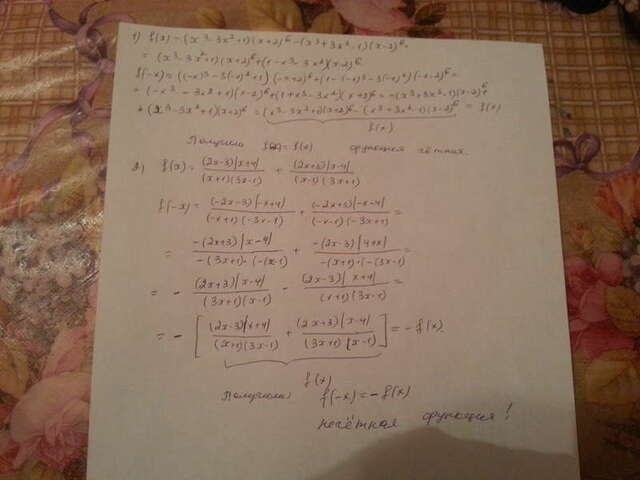 1) f(x) = (x³-3x²+1)(x+2)⁶-(x³+3x²-1)(x-2)⁶=
= (x³-3x²+1)(x+2)⁶+(1-x³-3x²)(x-2)⁶
f(-x)= ((-x)³-3(-x)²+1)(-x+2)⁶+(1-(-x)³-3(-x)²)(-x-2)⁶=
= (-x³-3x²+1)(x-2)⁶+(1+x³-3x²)(x+2)⁶=-(x³+3x²-1)(x-2)⁶+
+(x³-3x²+1)(x+2)⁶=(x³-3x²+1)(x+2)⁶-(x³+3x²-1)(x-2)⁶ = f(x)
f(x)
Получили f(-x)=f(x) функция чётная.
2) f(x)= (2x-3)|x+4| / (x+1)(3x-1) + (2x+3)|x-4| / (x-1)(3x+1)
f(-x)= (-2x-3)|-x+4| / (-x+1)(-3x-1) + (-2x+3)|-x-4| / (-x-1)(-3x+1) =
= -(2x+3)|x-4| / -(3x+1)·(-(x-1) + -(2x-3)|4+x| / -(x+1)·(-(3x-1) =
= - (2x+3)|x-4| / (3x+1)(x-1) - (2x-3)|x+4| / (x+1)(3x-1) =
= - [ (2x-3)|x+4| / (x+1)(3x-1) + (2x+3)|x-4| / (3x+1)(x-1) ] = -f(x)
f(x)
Получили: f(-x)=-f(x)
нечётная функция!